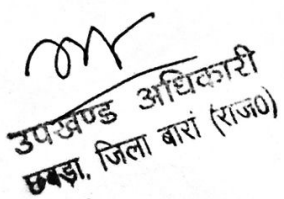 उपखण्ड अधिकारी
छबड़ा, जिला बारां (राज0)